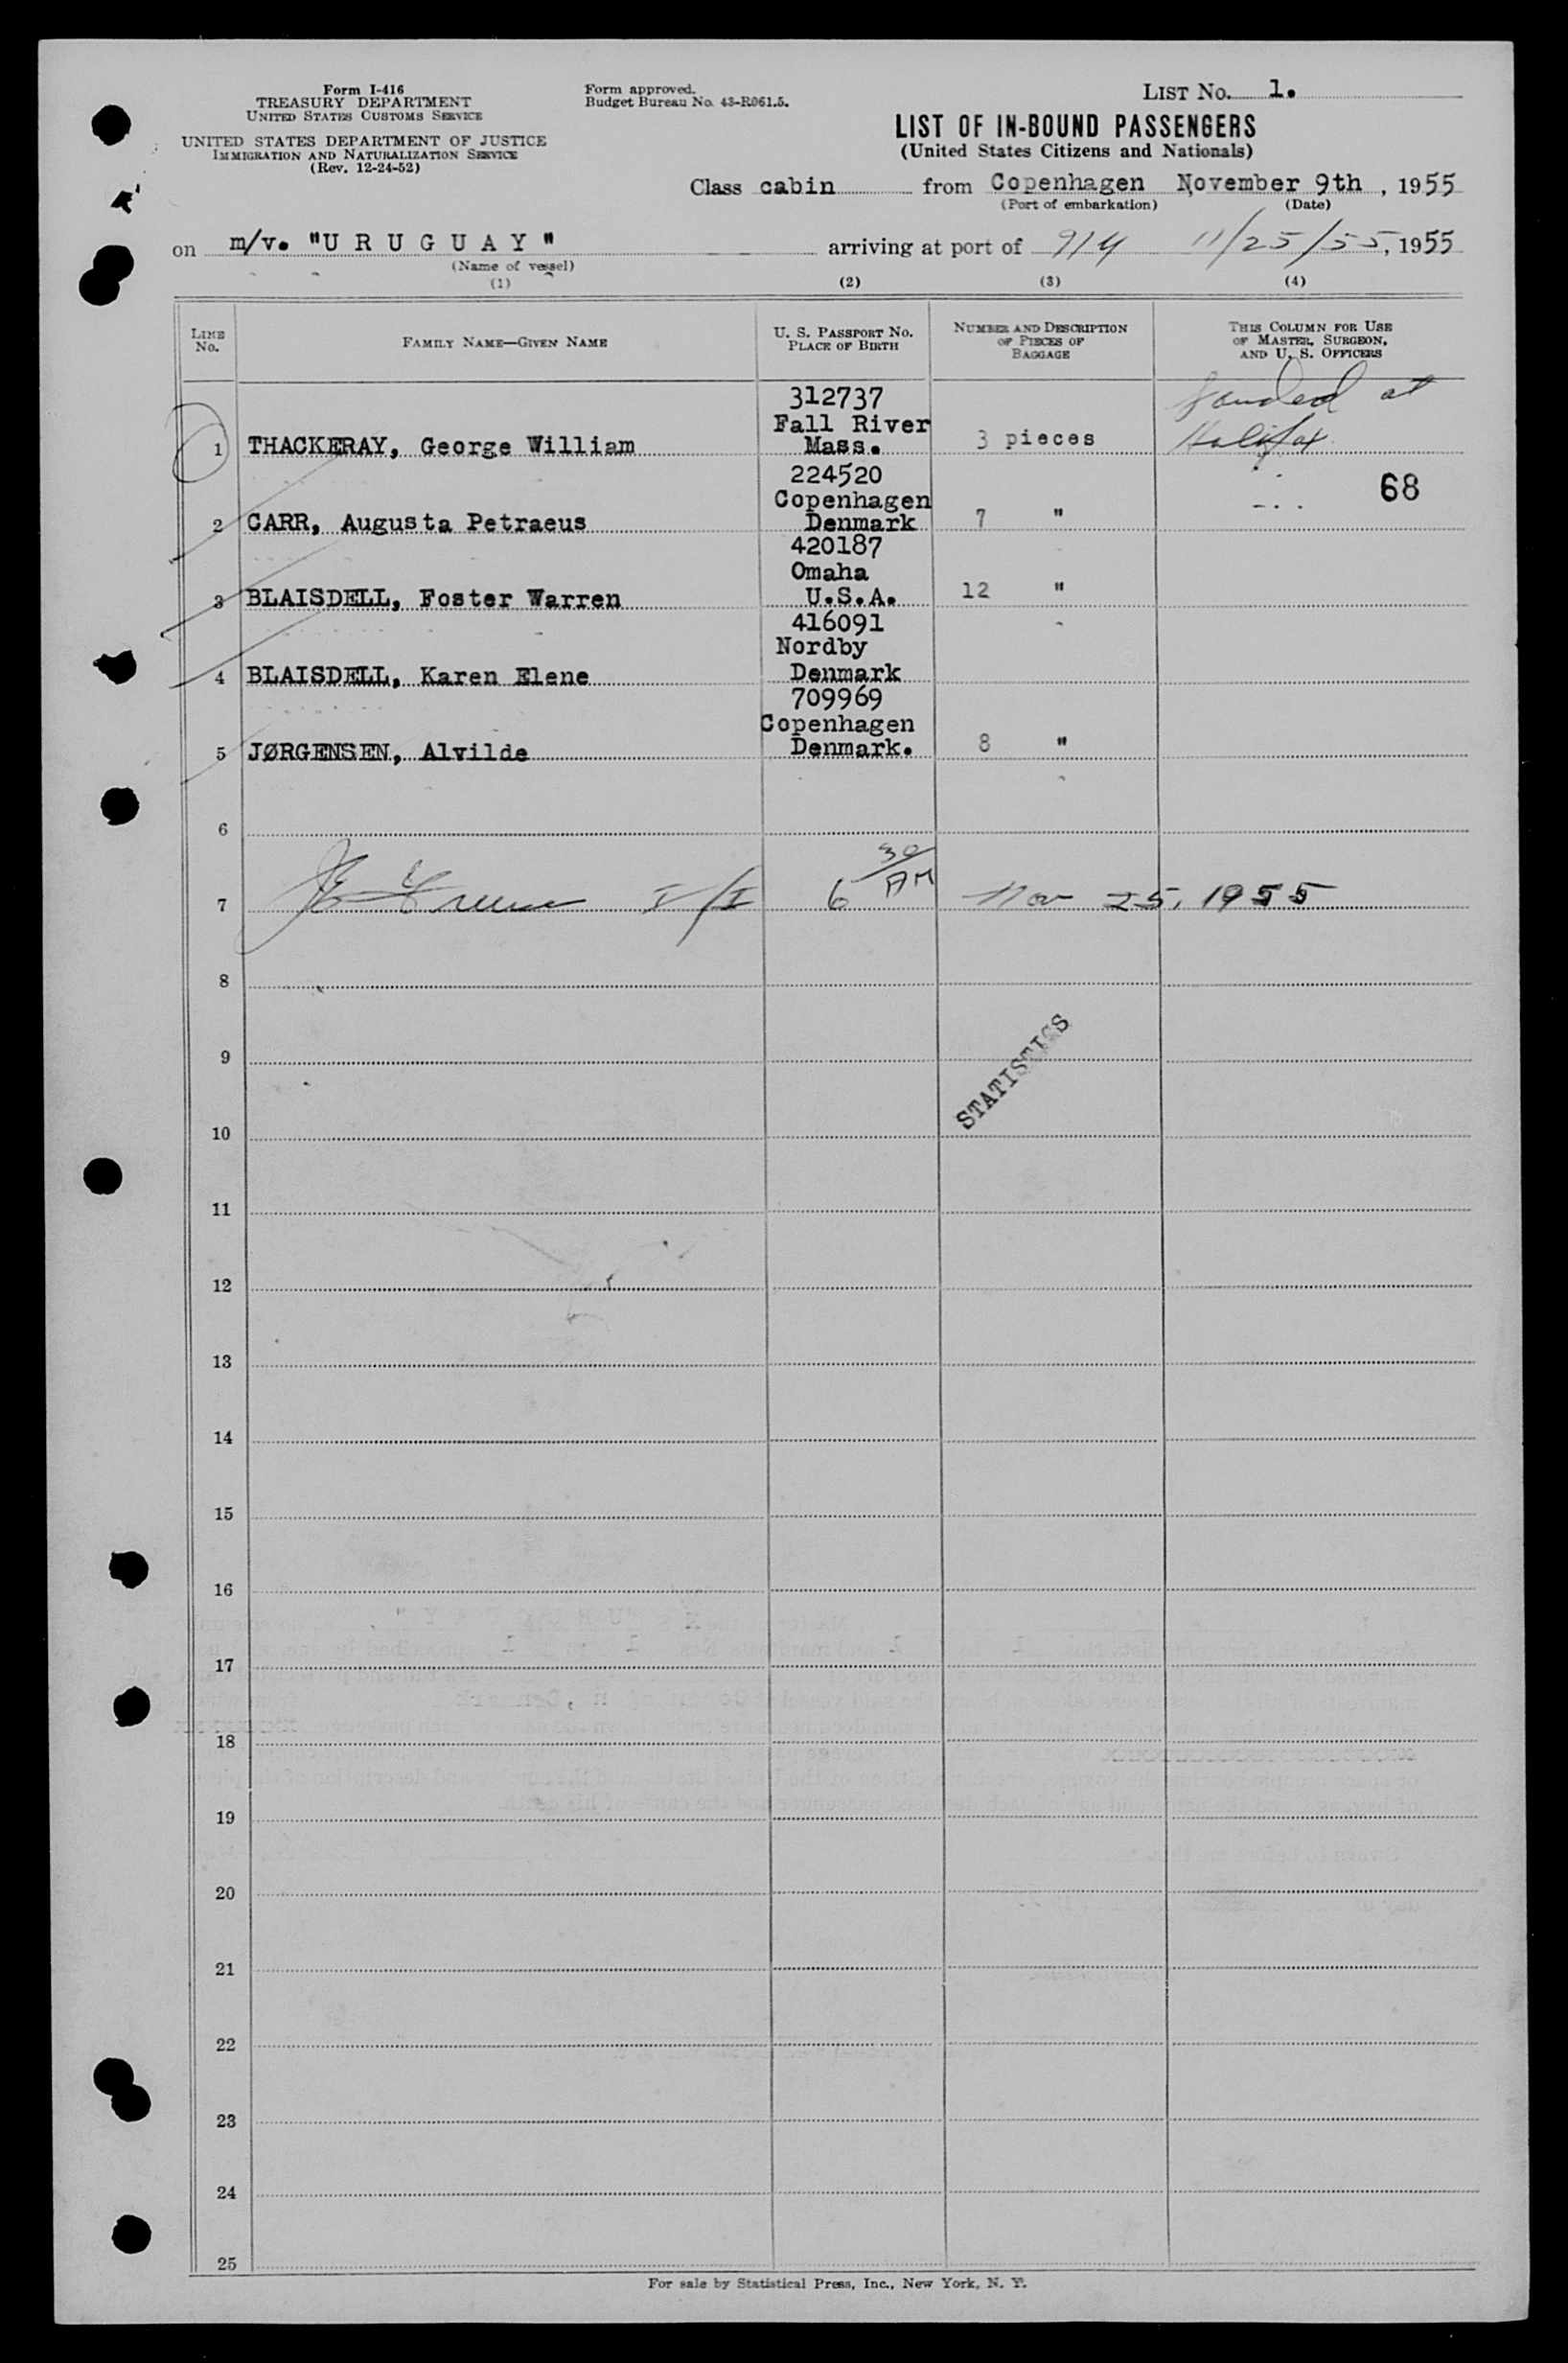 Form I-416
TREASURY DEPARTMENT
UNITED STATES CUSTOMS SERVICE
UNITED STATES DEPARTMENT OF JUSTICE
IMMIGRATION AND NATURALIZATION SERVICE
(Rev. 12-24-52)
Form approved.
Budget Bureau No. 43-R061.5.
LIST No. 1.
LIST OF IN-BOUND PASSENGERS
(United States Citizens and Nationals)
Class cabin from Copenhagen November 9th, 1955
(Port of embarkation) (Date)
on m/v. "U R U G U A Y" arriving at port of 11/25/55, 1955
(Name of vessel)
(1) (2) (3) (4)
LINE No. FAMILY NAME—GIVEN NAME U. S. PASSPORT NO. PLACE OF BIRTH NUMBER AND DESCRIPTION OF PIECES OF BAGGAGE THIS COLUMN FOR USE OF MASTER, SURGEON, AND U. S. OFFICERS
312737 landed at
Fall River
1 THACKERAY, George William Mass. 3 pieces Halifax
224520 68
Copenhagen
2 CARR, Augusta Petraeus Denmark 7 "
420187
Omaha
3 BLAISDELL, Foster Warren U.S.A. 12 "
416091
Nordby
4 BLAISDELL, Karen Elene Denmark
709969
Copenhagen
5 JØRGENSEN, Alvilde Denmark. 8 "
6
7 I/I 6 30 AM Nov 25, 1955
8
9
STATISTICS
10
11
12
13
14
15
16
17
18
19
20
21
22
23
24
25
For sale by Statistical Press, Inc., New York, N. Y.